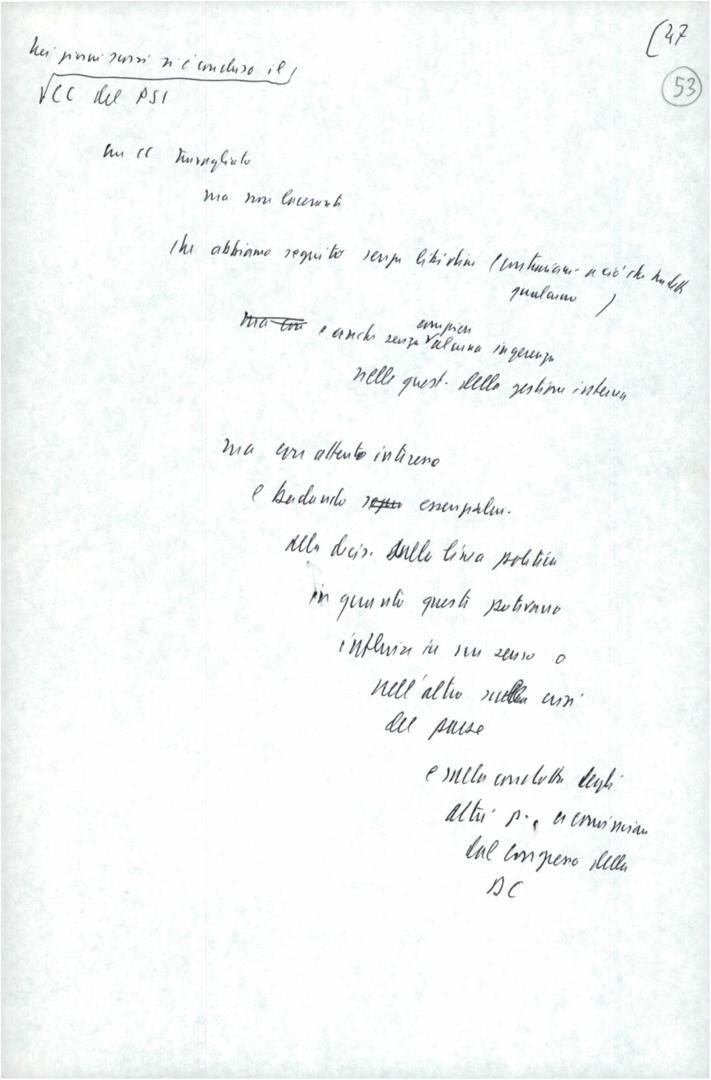 [47
53
Nei giorni scorsi si è concluso il
CC del PSI
un CC travagliato
ma non lacerante
che abbiamo seguito senza libidine (contrariam. a ciò che ha detto
qualcuno)
ma con e anche senza compiere alcuna ingerenza
nelle quest. della gestione interna
ma con attento interesse
e badando sopra essenzialm.
alla decis. sulla linea politica
in quanto questi potevano
influire in un senso o
nell'altro sulla crisi
del paese
e sulla condotta degli
altri p., a cominciare
dal congresso della
DC